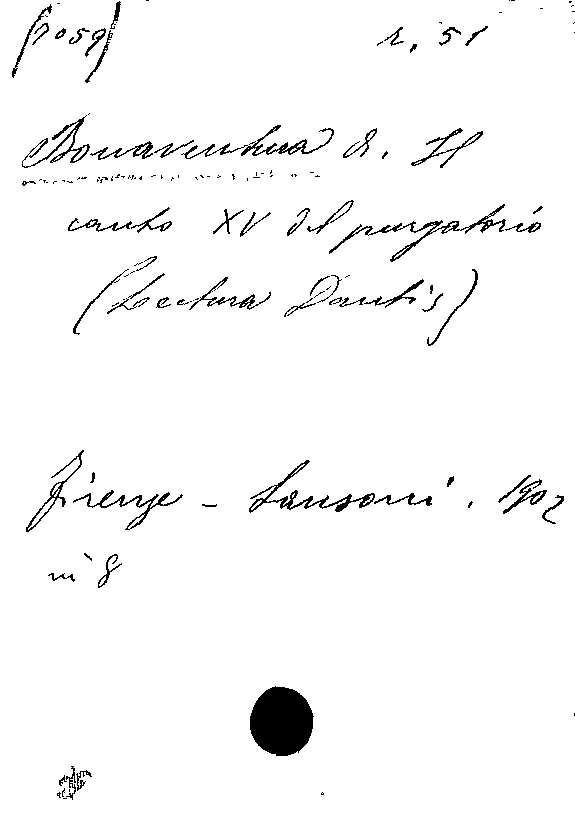 r. 51
Bonaventura A. Il
canto XV del purgatorio
(Lectura Dantis)
Firenze - Sansoni. 1902
in 8